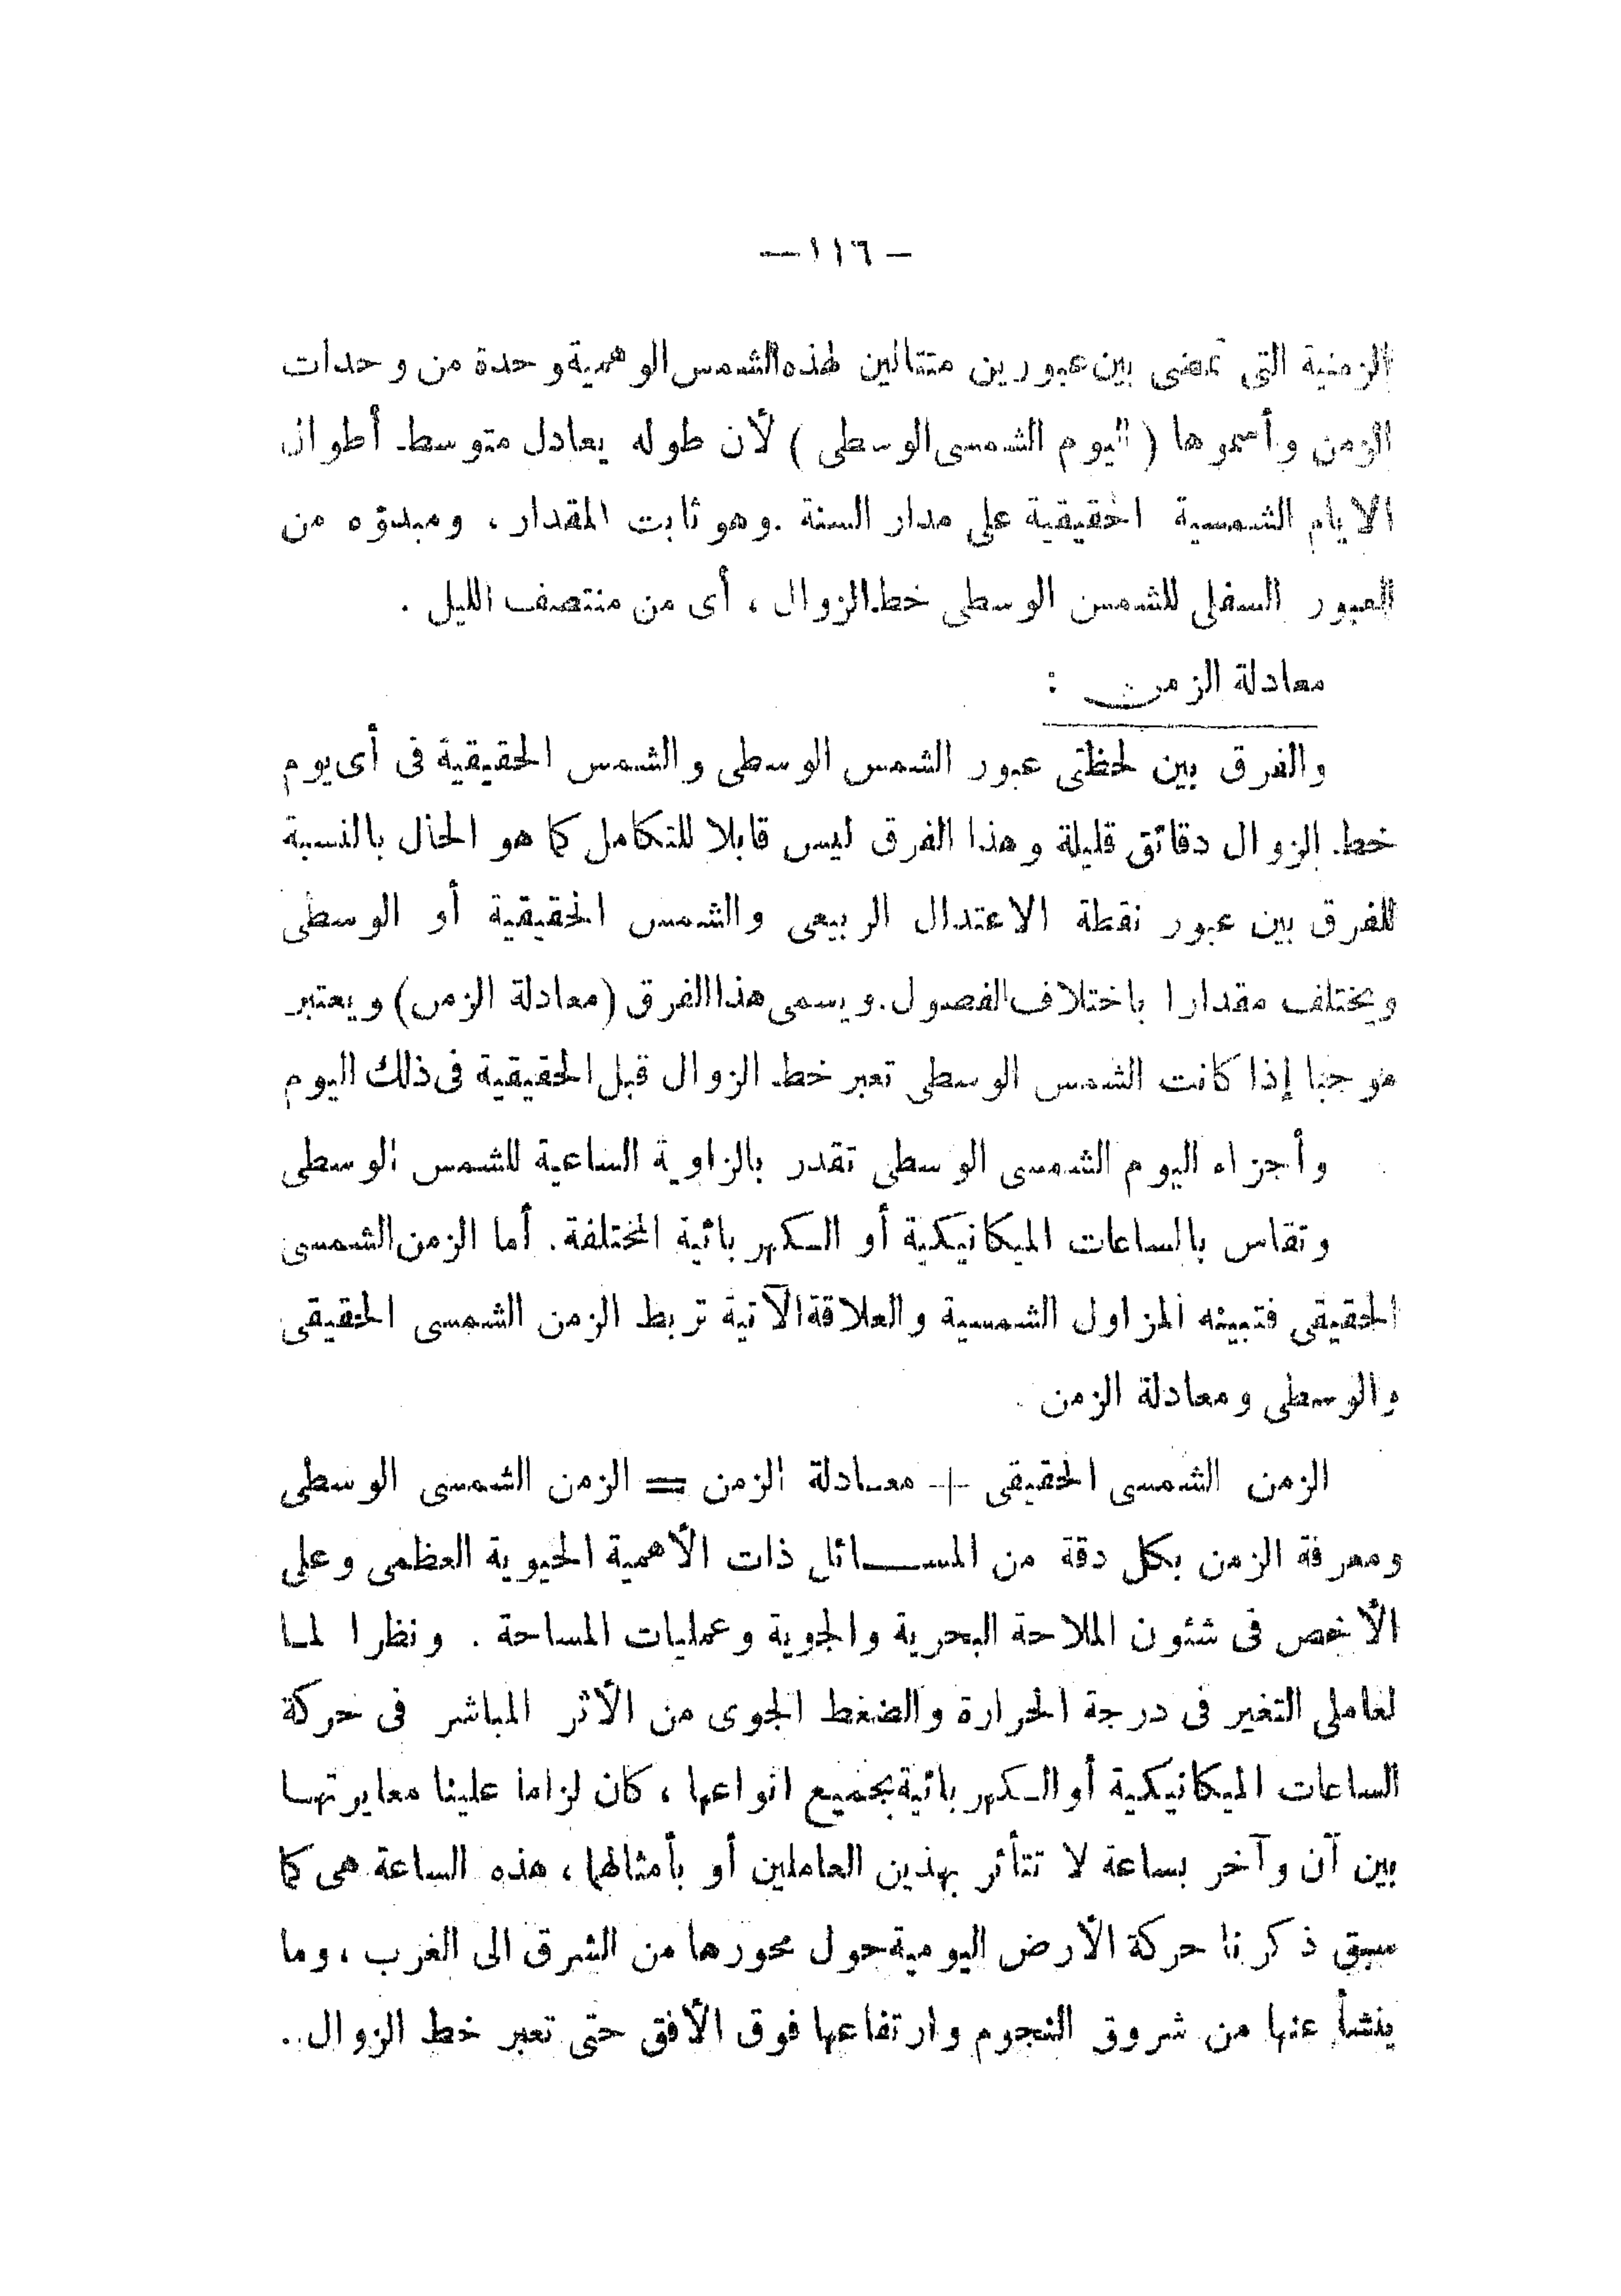 — ١١٦ —
الزمنية التى تمضى بين عبورين متتالين لهذه الشمس الوهمية وحدة من وحدات
الزمن وأسموها ( اليوم الشمسى الوسطى ) لأن طوله يعادل متوسط أطوال
الايام الشمسية الحقيقية على مدار السنة . وهو ثابت المقدار ، ومبدؤه من
العبور السفلى للشمس الوسطى خط الزوال ، أى من منتصف الليل .
معادلة الزمن :
والفرق بين لحظتى عبور الشمس الوسطى والشمس الحقيقية فى أى يوم
خط الزوال دقائق قليلة وهذا الفرق ليس قابلا للتكامل كما هو الحال بالنسبة
للفرق بين عبور نقطة الاعتدال الربيعى والشمس الحقيقية أو الوسطى
ويختلف مقدارا باختلاف الفصول . ويسمى هذا الفرق (معادلة الزمن) ويعتبر
موجبا إذا كانت الشمس الوسطى تعبر خط الزوال قبل الحقيقية فى ذلك اليوم
وأجزاء اليوم الشمسى الوسطى تقدر بالزاوية الساعية للشمس الوسطى
وتقاس بالساعات الميكانيكية أو الكهربائية المختلفة . أما الزمن الشمسى
الحقيقى فتبينه المزاول الشمسية والعلاقة الآتية تربط الزمن الشمسى الحقيقى
والوسطى ومعادلة الزمن .
الزمن الشمسى الحقيقى + معادلة الزمن = الزمن الشمسى الوسطى
ومعرفة الزمن بكل دقة من المسائل ذات الأهمية الحيوية العظمى وعلى
الأخص فى شئون الملاحة البحرية والجوية وعمليات المساحة . ونظرا لما
لعاملى التغير فى درجة الحرارة والضغط الجوى من الأثر المباشر فى حركة
الساعات الميكانيكية أو الكهربائية بجميع انواعها ، كان لزاما علينا معايرتها
بين آن وآخر بساعة لا تتأثر بهذين العاملين أو بأمثالها ، هذه الساعة هى كما
سبق ذكرنا حركة الأرض اليومية حول محورها من الشرق الى الغرب ، وما
ينشأ عنها من شروق النجوم وارتفاعها فوق الأفق حتى تعبر خط الزوال ..